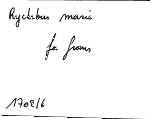 Ryckebus marie
fe frans
1708/6